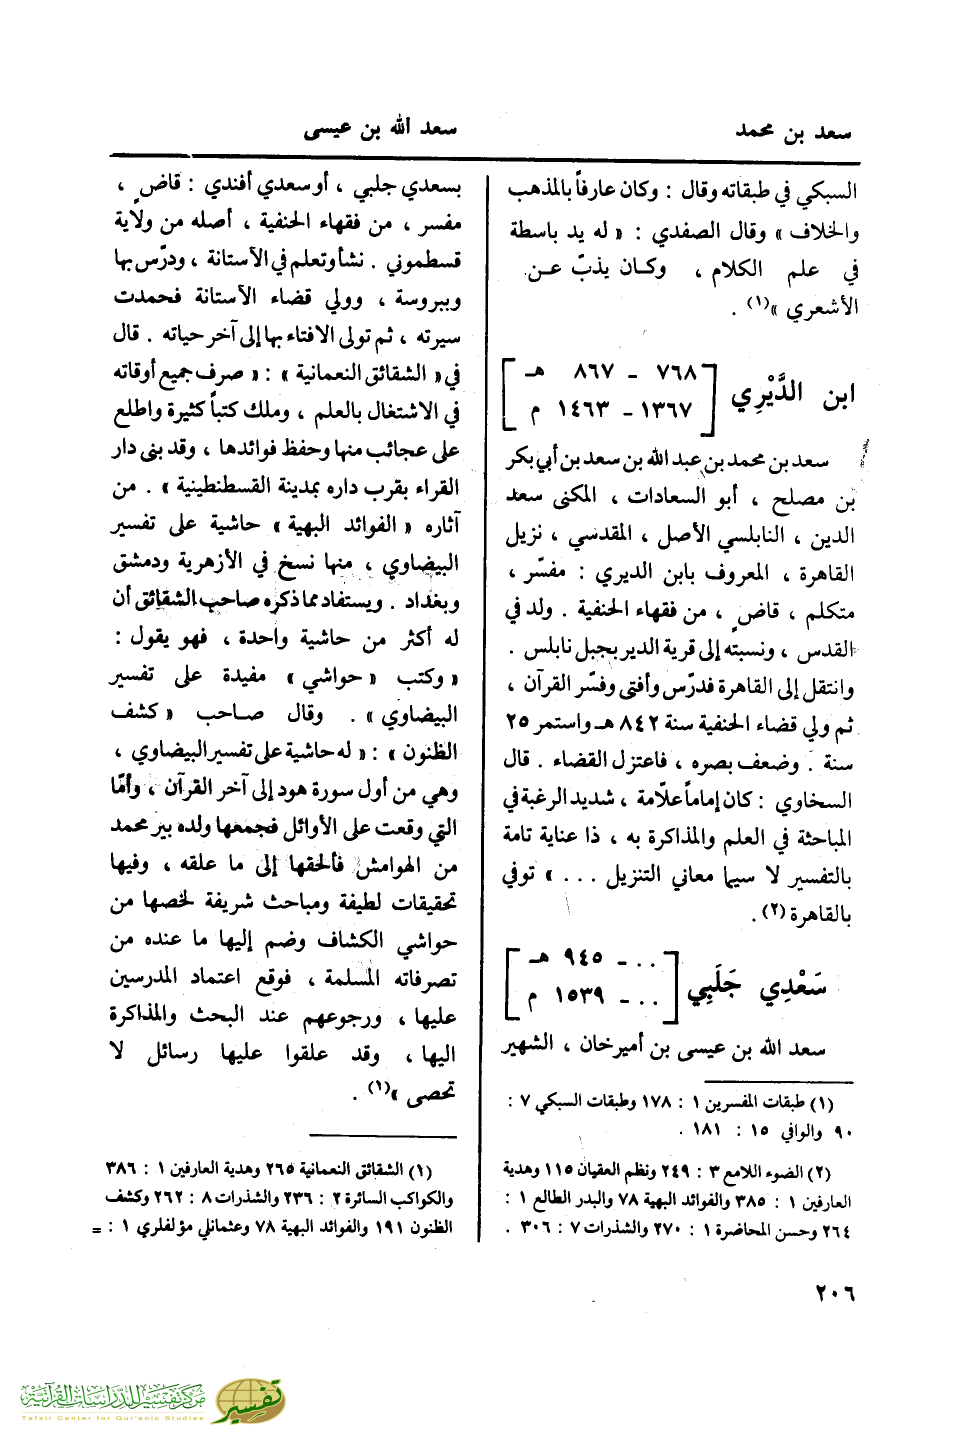 سعد بن محمد
سعد الله بن عيسى
السبكي في طبقاته وقال : وكان عارفاً بالمذهب
والخلاف » وقال الصفدي : « له يد باسطة
في علم الكلام ، وكان يذبّ عن
الأشعري »(١) .
ابن الدَّيْرِي [ ٧٦٨ - ٨٦٧ هـ
١٣٦٧ - ١٤٦٣ م ]
سعد بن محمد بن عبد الله بن سعد بن أبي بكر
بن مصلح ، أبو السعادات ، المكنى سعد
الدين ، النابلسي الأصل ، المقدسي ، نزيل
القاهرة ، المعروف بابن الديري : مفسّر ،
متكلم ، قاضٍ ، من فقهاء الحنفية . ولد في
القدس ، ونسبته إلى قرية الدير بجبل نابلس .
وانتقل إلى القاهرة فدرّس وأفتى وفسّر القرآن ،
ثم ولي قضاء الحنفية سنة ٨٤٢ هـ واستمر ٢٥
سنة . وضعف بصره ، فاعتزل القضاء . قال
السخاوي : كان إماماً علاّمة ، شديد الرغبة في
المباحثة في العلم والمذاكرة به ، ذا عناية تامة
بالتفسير لا سيما معاني التنزيل ... » توفي
بالقاهرة (٢) .
سَعْدِي جَلَبِي [ .. - ٩٤٥ هـ
.. - ١٥٣٩ م ]
سعد الله بن عيسى بن أميرخان ، الشهير
(١) طبقات المفسرين ١ : ١٧٨ وطبقات السبكي ٧ :
٩٠ والوافي ١٥ : ١٨١ .
(٢) الضوء اللامع ٣ : ٢٤٩ ونظم العقيان ١١٥ وهدية
العارفين ١ : ٣٨٥ والفوائد البهية ٧٨ والبدر الطالع ١ :
٢٦٤ وحسن المحاضرة ١ : ٢٧٠ والشذرات ٧ : ٣٠٦ .
بسعدي جلبي ، أو سعدي أفندي : قاضٍ ،
مفسر ، من فقهاء الحنفية ، أصله من ولاية
قسطموني . نشأ وتعلم في الآستانة ، ودرّس بها
وببروسة ، وولي قضاء الآستانة فحمدت
سيرته ، ثم تولى الافتاء بها إلى آخر حياته . قال
في « الشقائق النعمانية » : « صرف جميع أوقاته
في الاشتغال بالعلم ، وملك كتباً كثيرة واطلع
على عجائب منها وحفظ فوائدها ، وقد بنى دار
القراء بقرب داره بمدينة القسطنطينية » . من
آثاره « الفوائد البهية » حاشية على تفسير
البيضاوي ، منها نسخ في الأزهرية ودمشق
وبغداد . ويستفاد مما ذكره صاحب الشقائق أن
له أكثر من حاشية واحدة ، فهو يقول :
« وكتب « حواشي » مفيدة على تفسير
البيضاوي » . وقال صاحب « كشف
الظنون » : « له حاشية على تفسير البيضاوي ،
وهي من أول سورة هود إلى آخر القرآن ، وأمّا
التي وقعت على الأوائل فجمعها ولده بير محمد
من الهوامش فألحقها إلى ما علقه ، وفيها
تحقيقات لطيفة ومباحث شريفة لخصها من
حواشي الكشاف وضم إليها ما عنده من
تصرفاته المسلمة ، فوقع اعتماد المدرسين
عليها ، ورجوعهم عند البحث والمذاكرة
اليها ، وقد علقوا عليها رسائل لا
تحصى »(١) .
(١) الشقائق النعمانية ٢٦٥ وهدية العارفين ١ : ٣٨٦
والكواكب السائرة ٢ : ٢٣٦ والشذرات ٨ : ٢٦٢ وكشف
الظنون ١٩١ والفوائد البهية ٧٨ وعثمانلي مؤلفلري ١ : =
٢٠٦
مركز تفسير للدراسات القرآنية
Tafsir Center for Qur'anic Studies
تفسير